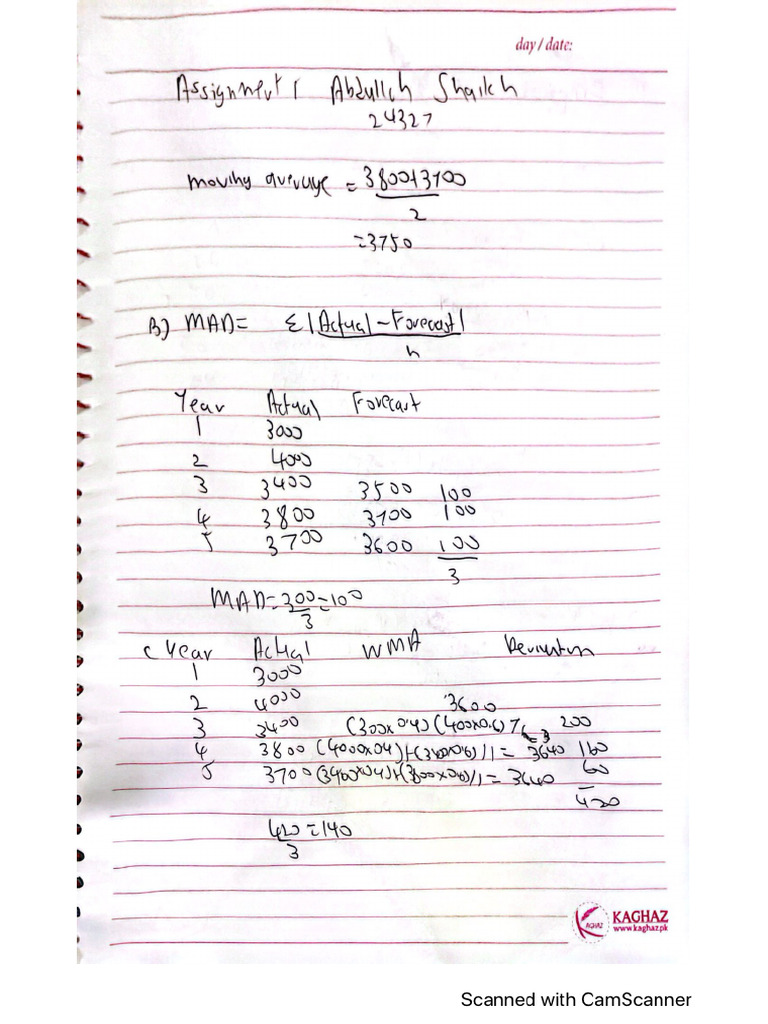 day / date:
Assignment 1 Abdullah Shaikh
24327
moving average = 3800+3700
2
=3750
B) MAD= Σ|Actual - Forecast|
n
Year Actual Forecast
1 3000
2 4000
3 3400 3500 100
4 3800 3700 100
5 3700 3600 100
3
MAD=300=100
3
C Year Actual WMA Deviation
1 3000
2 4000 3600
3 3400 (300x04)(400x0.6) 200
4 3800 (4000x04)+(3400x06)/1 = 3640 160
5 3700 (3400x04)+(3800x06)/1 = 3640 60
420
420=140
3
KAGHAZ
www.kaghaz.pk
Scanned with CamScanner